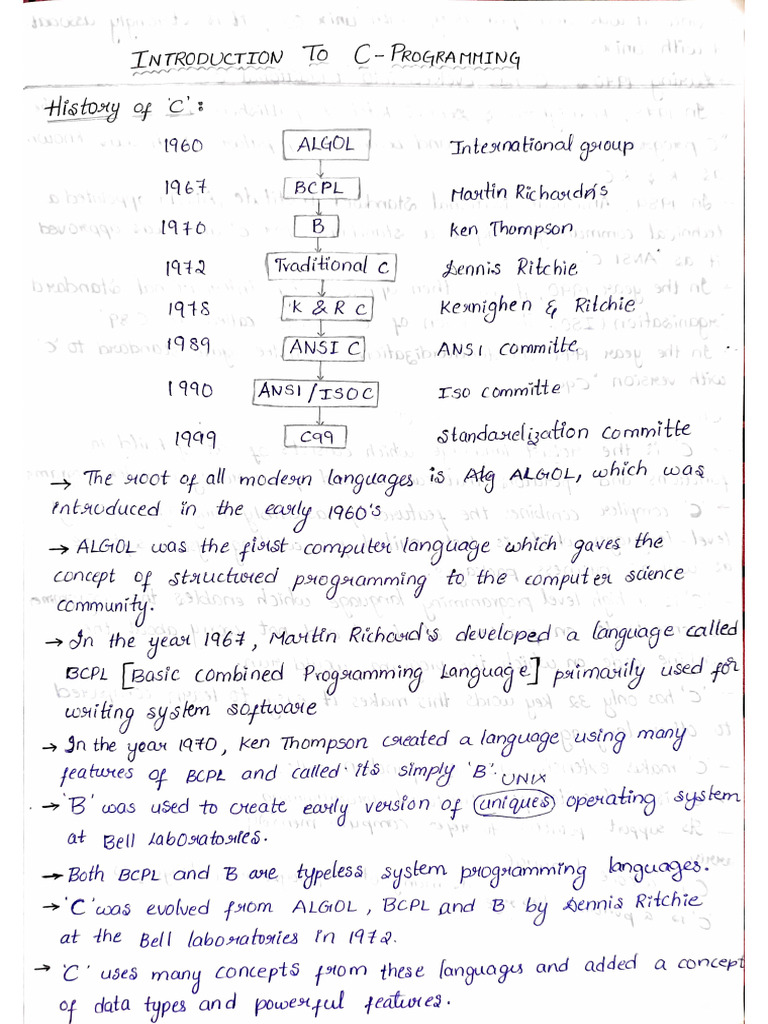 INTRODUCTION TO C-PROGRAMMING
History of 'C':
1960 ALGOL International group
1967 BCPL Martin Richardn's
1970 B Ken Thompson
1972 Traditional C Dennis Ritchie
1978 K & R C Kernighen & Ritchie
1989 ANSI C ANSI committe
1990 ANSI/ISO C ISO committe
1999 C99 Standarelization committe
→ The root of all modern languages is Alg ALGOL, which was
introduced in the early 1960's
→ ALGOL was the first computer language which gaves the
concept of structured programming to the computer science
community.
→ In the year 1967, Martin Richard's developed a language called
BCPL [Basic Combined Programming Language] primarily used for
writing system software
→ In the year 1970, Ken Thompson created a language using many
features of BCPL and called its simply 'B'.
UNIX
→ 'B' was used to create early version of uniques operating system
at Bell Laboratories.
→ Both BCPL and B are typeless system programming languages.
→ 'C' was evolved from ALGOL, BCPL and B by Dennis Ritchie
at the Bell laboratories in 1972.
→ 'C' uses many concepts from these languages and added a concept
of data types and powerful features.